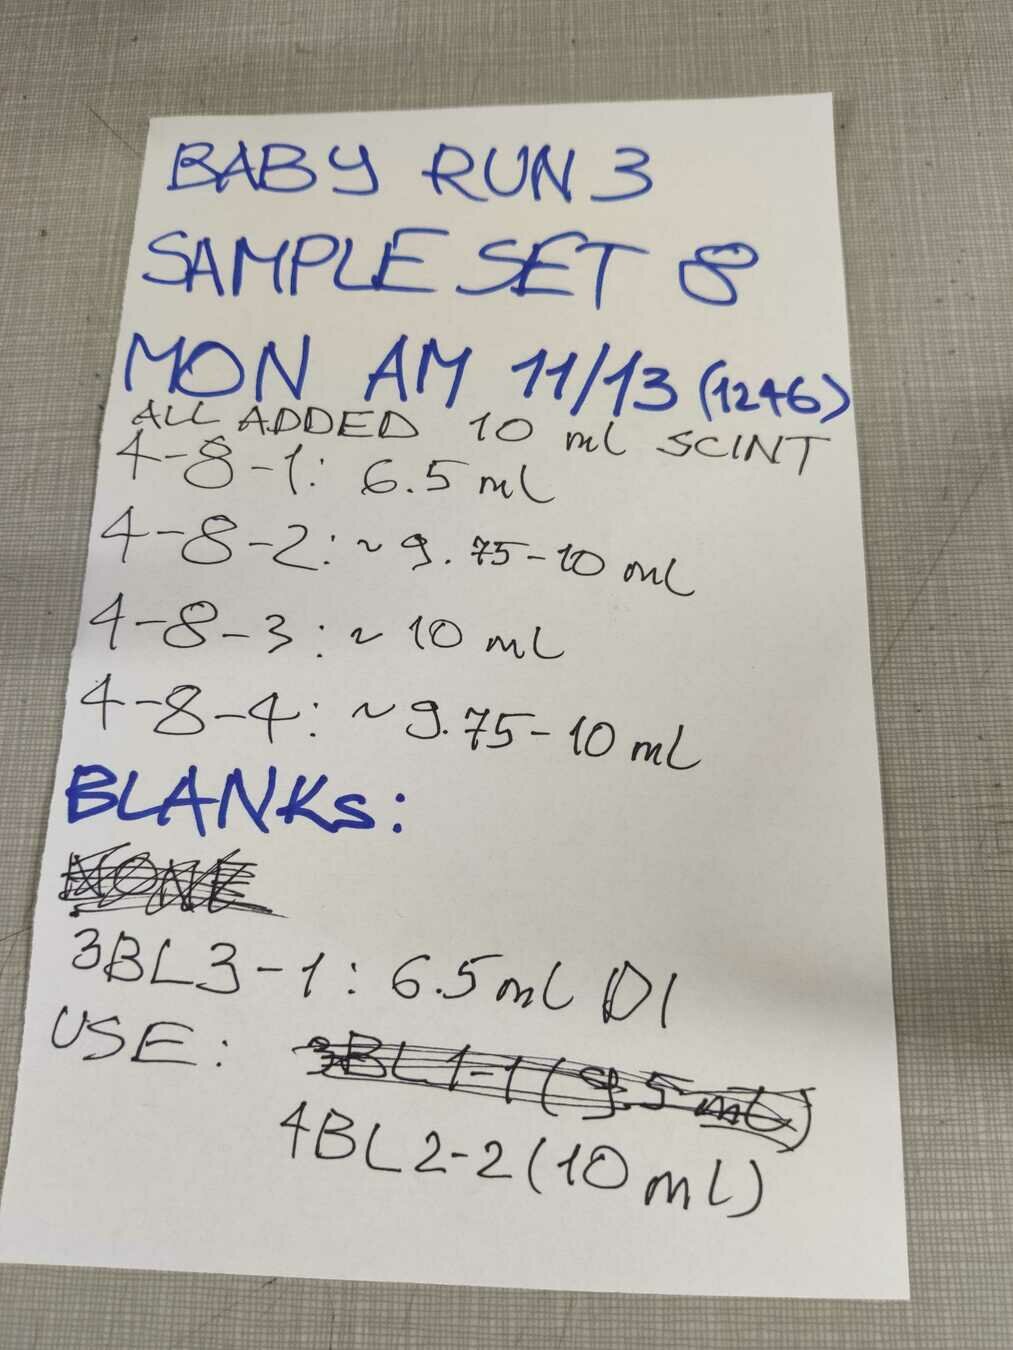 BABY RUN 3
SAMPLE SET 8
MON AM 11/13 (1246)
ALL ADDED 10 mL SCINT
4-8-1: 6.5 mL
4-8-2: ~9.75-10 mL
4-8-3: ~10 mL
4-8-4: ~9.75-10 mL
BLANKS:
NONE
3BL3-1: 6.5 mL DI
USE: 3BL1-1 (9.5 mL)
4BL2-2 (10 mL)